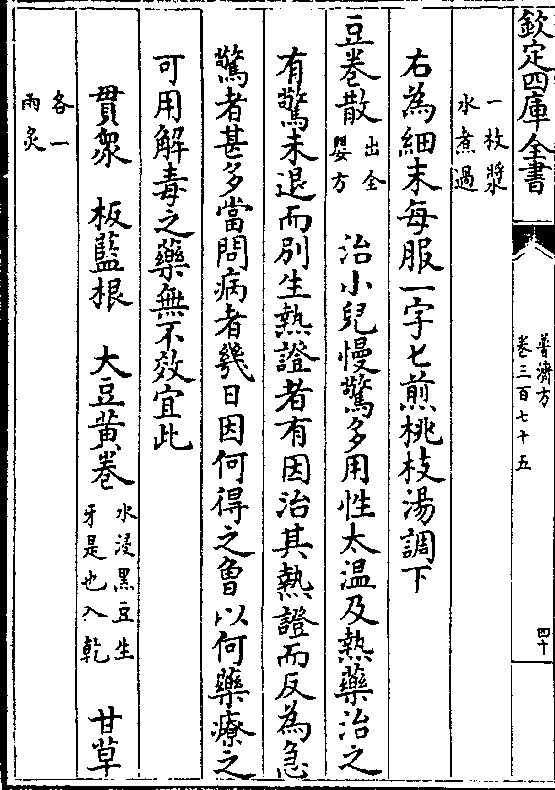 欽定四庫全書
普濟方
卷三百七十五
四十
一枚漿
水煮過
右為細末每服一字匕煎桃枝湯調下
豆卷散
出全
嬰方
治小兒慢驚多用性太温及熱藥治之
有驚未退而別生熱證者有因治其熱證而反為急
驚者甚多當問病者幾日因何得之曾以何藥療之
可用解毒之藥無不效宜此
貫衆 板藍根 大豆黄卷
水浸黒豆生
牙是也入乾
甘草
各一
兩炙